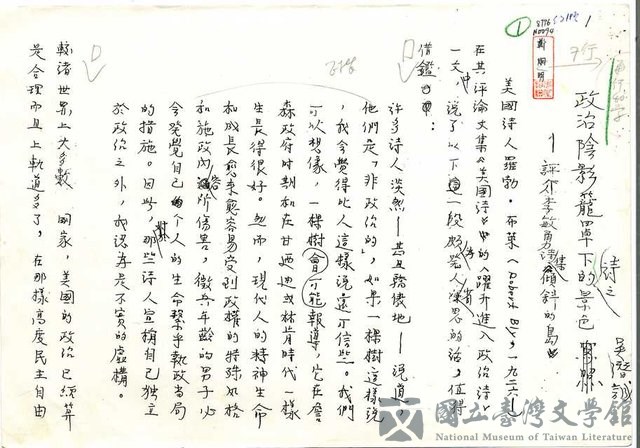 1
8776
N0094
鄭炯明
9行
政治陰影籠罩下的景色
詩之
吳潛誠
—評介李敏勇詩集傾斜的島
美國詩人羅勃．布萊(Robert Bly,一九二六)
在其評論文集《美國詩》中的〈躍升進入政治詩〉
一文中,說了以下這一段
的話,值得
借鑑
許多詩人淡然—甚且驕傲地—說道,
他們是「非政治的」,如果一棵樹這樣說
,我會覺得比人這樣說還可信些。我們
可以想像,一棵樹會可能報導,它在詹
森政府時期和在甘迺迪或林肯時代一樣
生長得很好。然而,現代人的精神生命
和成長愈來愈容易受到政權的特殊風格
和施政內容所傷害,徵兵年齡的男子必
會發覺自己個人的生命繫乎執政當局
的措施。因此,對那些詩人宣稱自己獨立
於政治之外,我認為是不實的虛構。
較諸世界上大多數國家,美國的政治已經算
是合理而且上軌道多了,在那樣高度民主自由
國立臺灣文學館
National Museum of Taiwan Literature